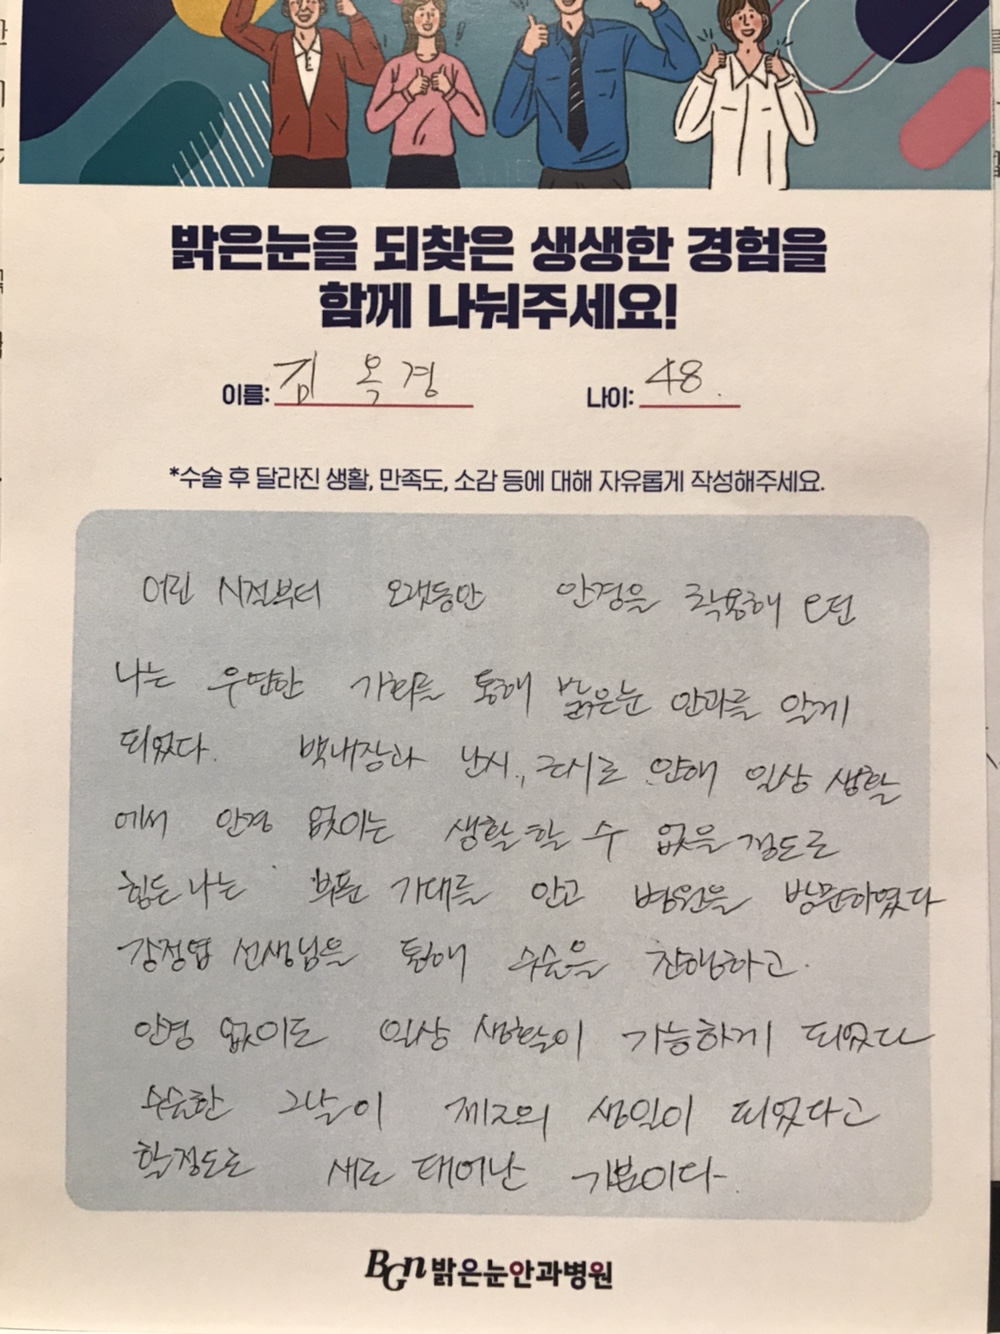 밝은눈을 되찾은 생생한 경험을
함께 나눠주세요!
이름: 김옥경 나이: 48.
*수술 후 달라진 생활, 만족도, 소감 등에 대해 자유롭게 작성해주세요.
어린 시절부터 오랫동안 안경을 착용해 오던
나는 우연한 기회를 통해 밝은눈 안과를 알게
되었다. 백내장과 난시, 근시로 인해 일상 생활
에서 안경 없이는 생활할 수 없을 정도로
힘든 나는 부푼 기대를 안고 병원을 방문하였다
강정엽 선생님을 통해 수술을 진행하고.
안경 없이도 일상 생활이 가능하게 되었다
수술한 그날이 제2의 생일이 되었다고
할정도로 새로 태어난 기분이다.
BGn 밝은눈안과병원